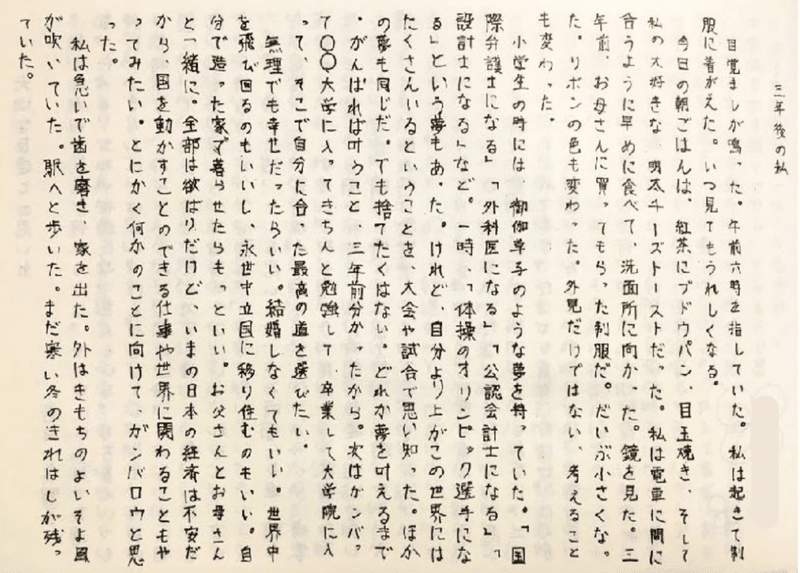 三年後の私
目覚ましが鳴った。午前六時を指していた。私は起きて制
服に着がえた。いつ見てもうれしくなる。
今日の朝ごはんは、紅茶にブドウパン、目玉焼き、そして
私の大好きな、明太チーズトーストだった。私は電車に間に
合うように早めに食べて、洗面所に向かった。鏡を見た。三
年前、お母さんに買ってもらった制服だ。だいぶ小さくな
た。リボンの色も変わった。外見だけではない、考えること
も変わった。
小学生の時には、御伽草子のような夢を持っていた。「国
際弁護士になる」「外科医になる」「公認会計士になる」「
設計士になる」など。一時、「体操のオリンピック選手にな
る」という夢もあった。けれど、自分より上がこの世界には
たくさんいるということを、大会や試合で思い知った。ほか
の夢も同じだ。でも捨てたくはない。どれか夢を叶えるまで
。がんばれば叶うこと、三年前分かったから。次はガンバっ
て〇〇大学に入ってきちんと勉強して、卒業して大学院に入
って、そこで自分に合った最高の道を選びたい。
無理でも幸せだったらいい。結婚しなくてもいい。世界中
を飛び回るのもいいし、永世中立国に移り住むのもいい。自
分で造った家で暮らせたらもっといい。お父さんとお母さん
と一緒に。全部は欲ばりだけど、いまの日本の経済は不安だ
から、国を動かすことのできる仕事や世界に関わることもや
ってみたい。とにかく何かのことに向けてガンバロウと思
った。
私は急いで歯を磨き、家を出た。外はきもちのよいそよ風
が吹いていた。駅へと歩いた。まだ寒い冬のきれはしが残っ
ていた。